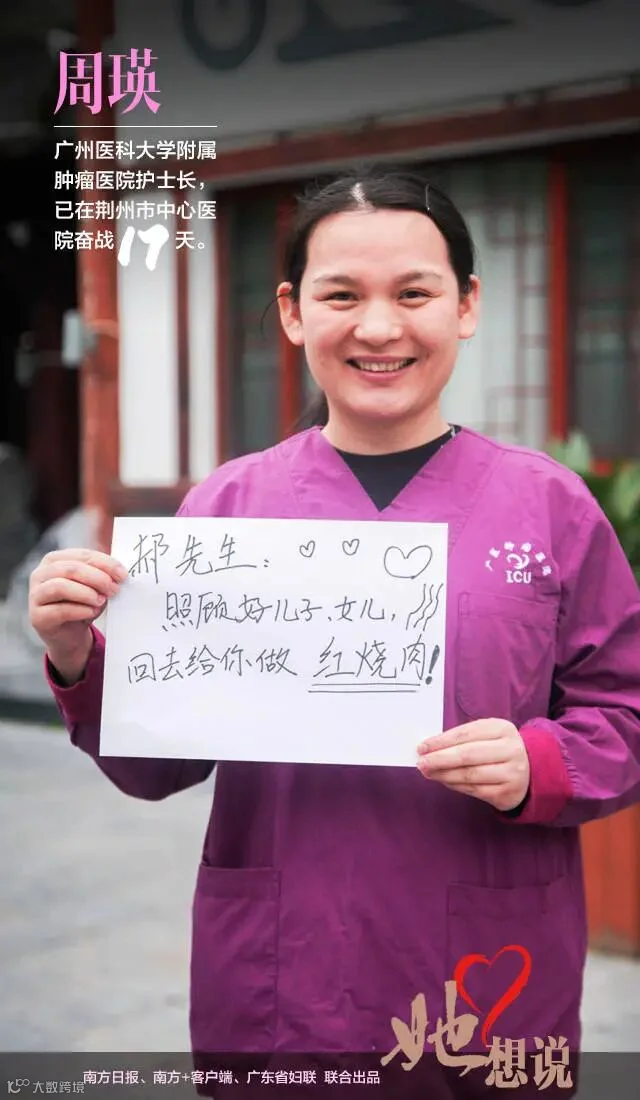 周瑛
广州医科大学附属
肿瘤医院护士长，
已在荆州市中心医
院奋战17天。
郝先生：
照顾好儿子、女儿，
回去给你做 红烧肉！
ICU
她想说
南方日报、南方+客户端、广东省妇联 联合出品
大数跨境